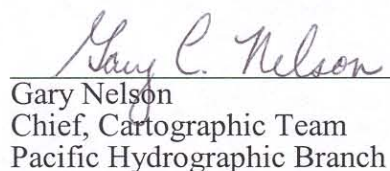 Gary C. Nelson
Gary Nelson
Chief, Cartographic Team
Pacific Hydrographic Branch